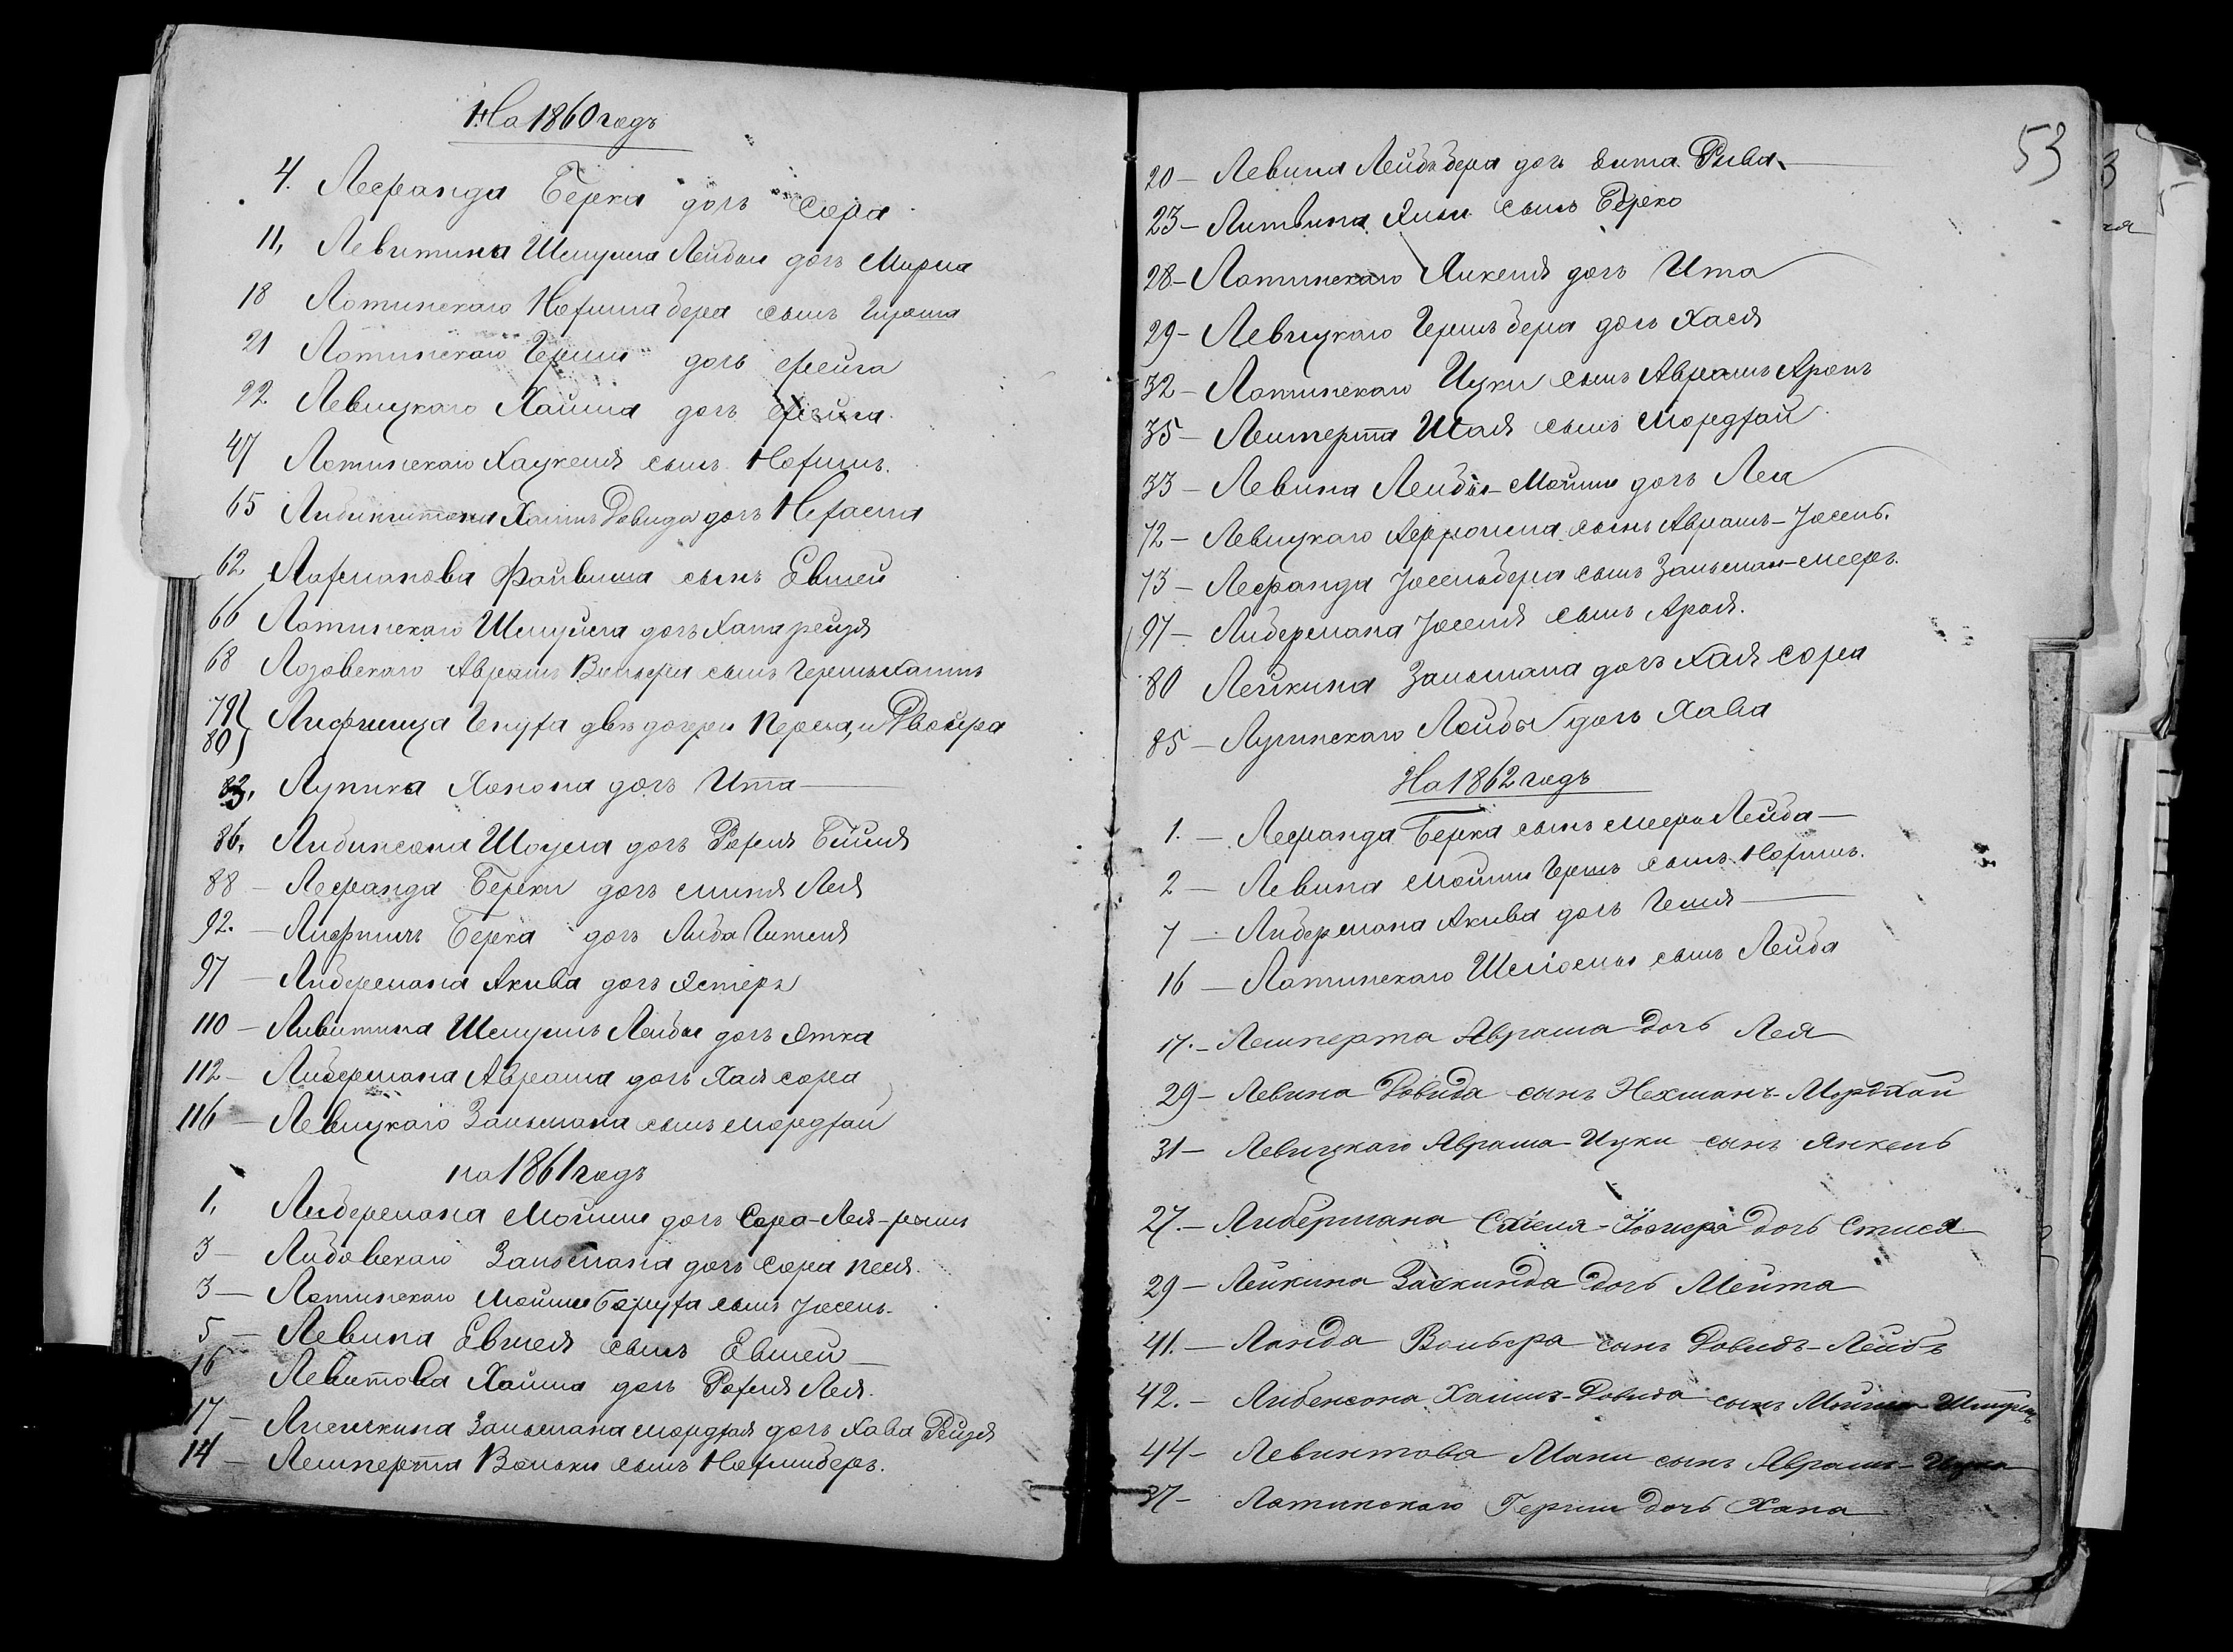 На 1860 годъ
4. Лефранда Берка дочь Сора
11, Левитина Шмуила Лейбы дочь Мирка
18 Лотинскаго Нохима бера сынъ
21 Лотинскаго Герши дочь Фейга
22. Левицкаго Хаима дочь
47 Лотинскаго Хацкеля сынъ Нохимъ.
65 Хаимъ Довида дочь Нехама
62. Лахманова Файвиша сынъ Евшей
66 Лотинскаго Шмуила дочь Хана рейзя
68 Лозовскаго Аврамъ Вольфа сынъ Гершъ Хаимъ
79} 80} Лифшица Генуха двѣ дочери Перла, и Двойра
83, Лупика Хонона дочь Итта —
86, Либинсона Шоула дочь Рохля Бейля
88 — Лефранда Берки дочь Миня Лея
92. — Лифшицъ Берка дочь Либа Гителя
97 — Либермана Акива дочь Эстеръ
110 — Ливитина Шмуилъ Лейбы дочь Этка
112 — Либермана Аврама дочь Хая сора
116 — Левицкаго Зальмана сынъ мордхай
на 1861 годъ
1, Либермана Мойши дочь Сора-Лея-
3 — Либовскаго Зальмана дочь Сора песя.
3 — Лотинскаго Мойши Боруха сынъ Іосель.
5 — Левина Евшея сынъ Евшей —
16 Левитова Хаима дочь Рохля Лея.
17 — Зальмана мордхая дочь Хава Рейзя
14 — Лемперта Вольки сынъ Нохимберъ.
53
20 — Левина Лейбъ бера дочь Рыва —
23 — Литвина сынъ Берко
28 — Лотинскаго Янкеля дочь Ита
29 — Левицкаго Гершъ бера дочь Хася
32 — Лотинскаго Ицки сынъ Аврамъ Аронъ
35 — Лемперта Шая сынъ Мордхай
33 — Левина Лейбы-Мойши дочь Леа
72 — Левицкаго сынъ Аврамъ-Іосель.
73 — Лефранда Іосельбера сынъ Зальман-мееръ.
97 — Либермана Іоселя сынъ
80 Лейкина Зальмана дочь Хая сора
85 — Лейбы дочь Хава
На 1862 годъ
1. — Лефранда Берка сынъ меера Лейба —
2 — Левина Мойши Гершъ сынъ Нохимъ.
7 — Либермана Акива дочь Геля —
16 — Лотинскаго Шліомы сынъ Лейба
17. — Лемперта Аврама дочь Лея
29 — Левина Довида сынъ Нехманъ-Мордхай
31 — Левицкаго Аврама-Ицки сынъ Янкель
27. — Либермана дочь Стися
29 — Лейкина Заскинда дочь Мейта
41. — Ланда Вольфа сынъ Довидъ-Лейбъ
42. — Либенсона Хаимъ-Довида сынъ Мойша-Шмуилъ
44 — Левинтова Мани сынъ Аврамъ-Ицка
37 — Лотинскаго Герши дочь Хана